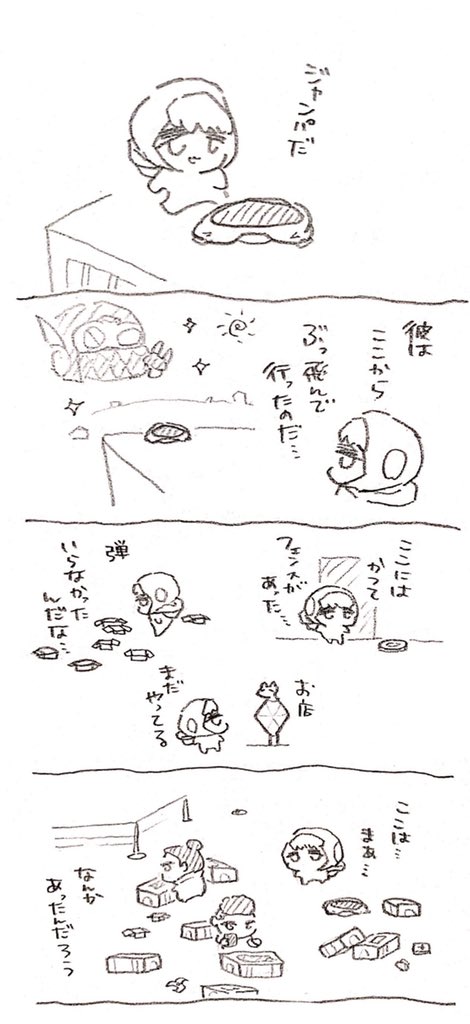 ジャンパだ
彼は
ここから
ぶっ飛んで
行ったのだ…
ここには
かつて
フェンスが
あった…
弾
いらなかった
んだな…
お店
まだ
やってる
ここは…
まぁ…
なんか
あったんだろう